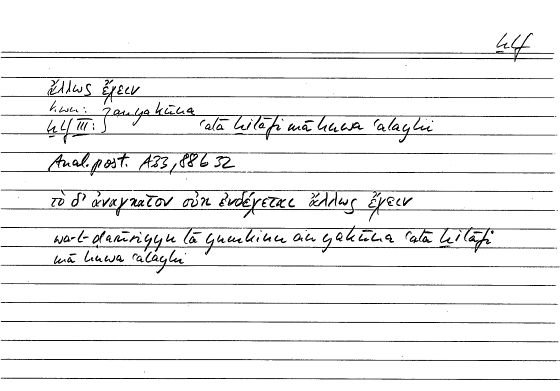 ẖlf
ἄλλως ἔχειν
kwn: } an yakūna
ẖlf III: ‘alā ẖilāfi mā huwa ‘alayhi
Anal. post. A33, 88b32
τὸ δ' ἀναγκαῖον οὐκ ἐνδέχεται ἄλλως ἔχειν
wa-l-ḍarūriyyu lā yumkinu an yakūna ‘alā ẖilāfi
mā huwa ‘alayhi